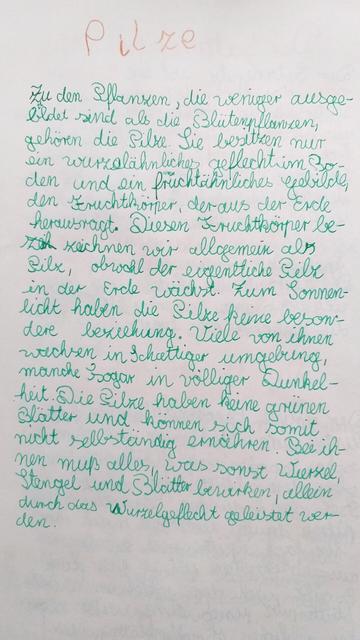 Pilze
Zu den Pflanzen, die weniger ausge-
bildet sind als die Blütenpflanzen,
gehören die Pilze. Sie besitzen nur
ein wurzelähnliches geflecht im Bo-
den und ein früchtähnliches Gebilde,
den Fruchtkörper, der aus der Erde
herausragt. Diesen Fruchtkörper be-
zeichnen wir allgemein als
Pilz, obwohl der eigentliche Pilz
in der Erde wächst. Zum Sonnen-
licht haben die Pilze keine beson-
dere beziehung. Viele von ihnen
wachsen in Schattiger umgebung,
manche sogar in völliger Dunkel-
heit. Die Pilze haben keine grünen
Blätter und können sich somit
nicht selbständig ernähren. Bei ih-
nen muß alles, was sonst Wurzel,
Stengel und Blätter bewirken, allein
durch das Wurzelgeflecht geleistet wer-
den.